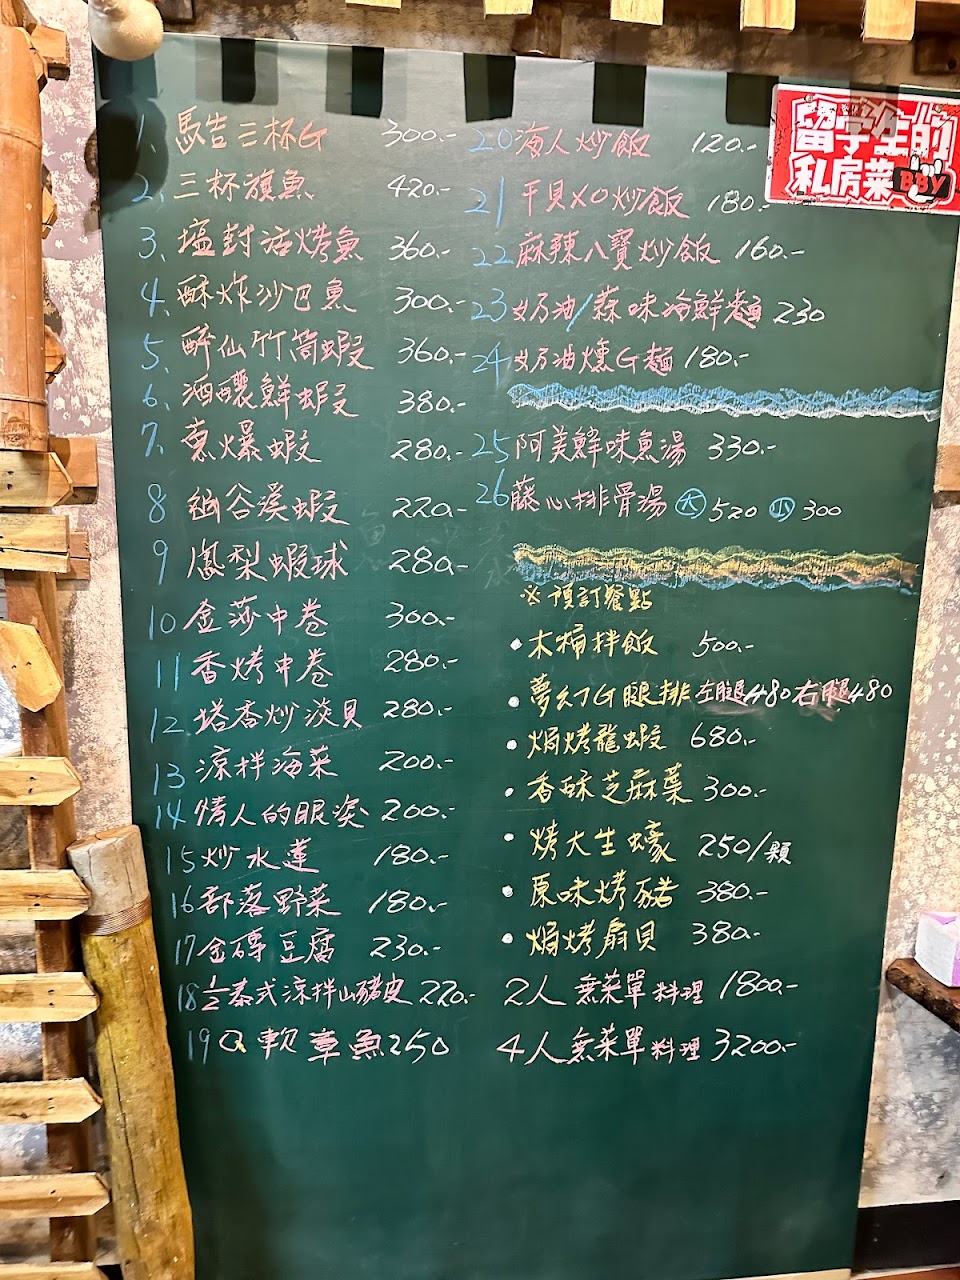 1. 馬告三杯G 300.-
2. 三杯旗魚 420.-
3. 塩封活烤魚 360.-
4. 酥炸沙巴魚 300.-
5. 醉仙竹筒蝦 360.-
6. 酒釀鮮蝦 380.-
7. 蔥爆蝦 280.-
8 幽谷溪蝦 220.-
9 鳳梨蝦球 280.-
10 金莎中卷 300.-
11 香烤中卷 280.-
12. 塔香炒淡貝 280.-
13 涼拌海菜 200.-
14 情人的眼淚 200.-
15 炒水蓮 180.-
16 部落野菜 180.-
17 金磚豆腐 230.-
18 1/2泰式涼拌山豬皮 220.-
19 Q軟章魚 250
20 海人炒飯 120.-
21 干貝XO炒飯 180.-
22 麻辣八寶炒飯 160.-
23 奶油/蒜味海鮮麵 230
24 奶油燻G麵 180.-
25 阿美鮮味魚湯 330.-
26 藤心排骨湯 大 520 小 300
※ 預訂餐點
• 木桶拌飯 500.-
• 夢幻G腿排 左腿480 右腿480
• 焗烤龍蝦 680.-
• 香酥芝麻葉 300.-
• 烤大生蠔 250/顆
• 原味烤豬 380.-
• 焗烤扇貝 380.-
2人 無菜單料理 1800.-
4人 無菜單料理 3200.-
留學生的
私房菜 BBY